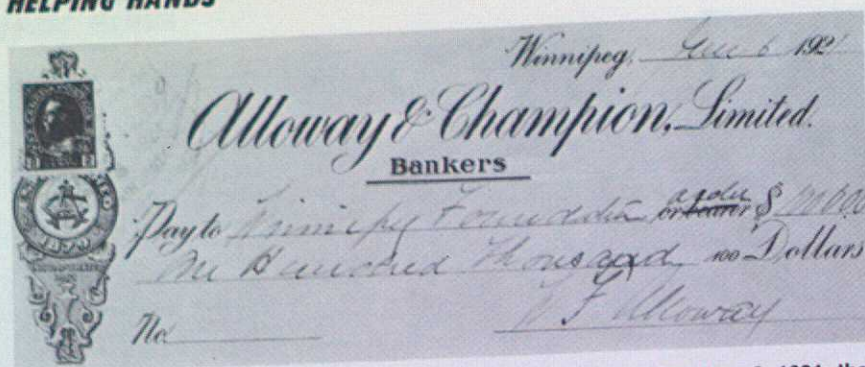 HELPING HANDS
Winnipeg, 6 192
Alloway & Champion, Limited.
Bankers
Pay to Winnipeg Foundation or bearer order $
One Hundred Thousand 100 Dollars
No.
W F Alloway